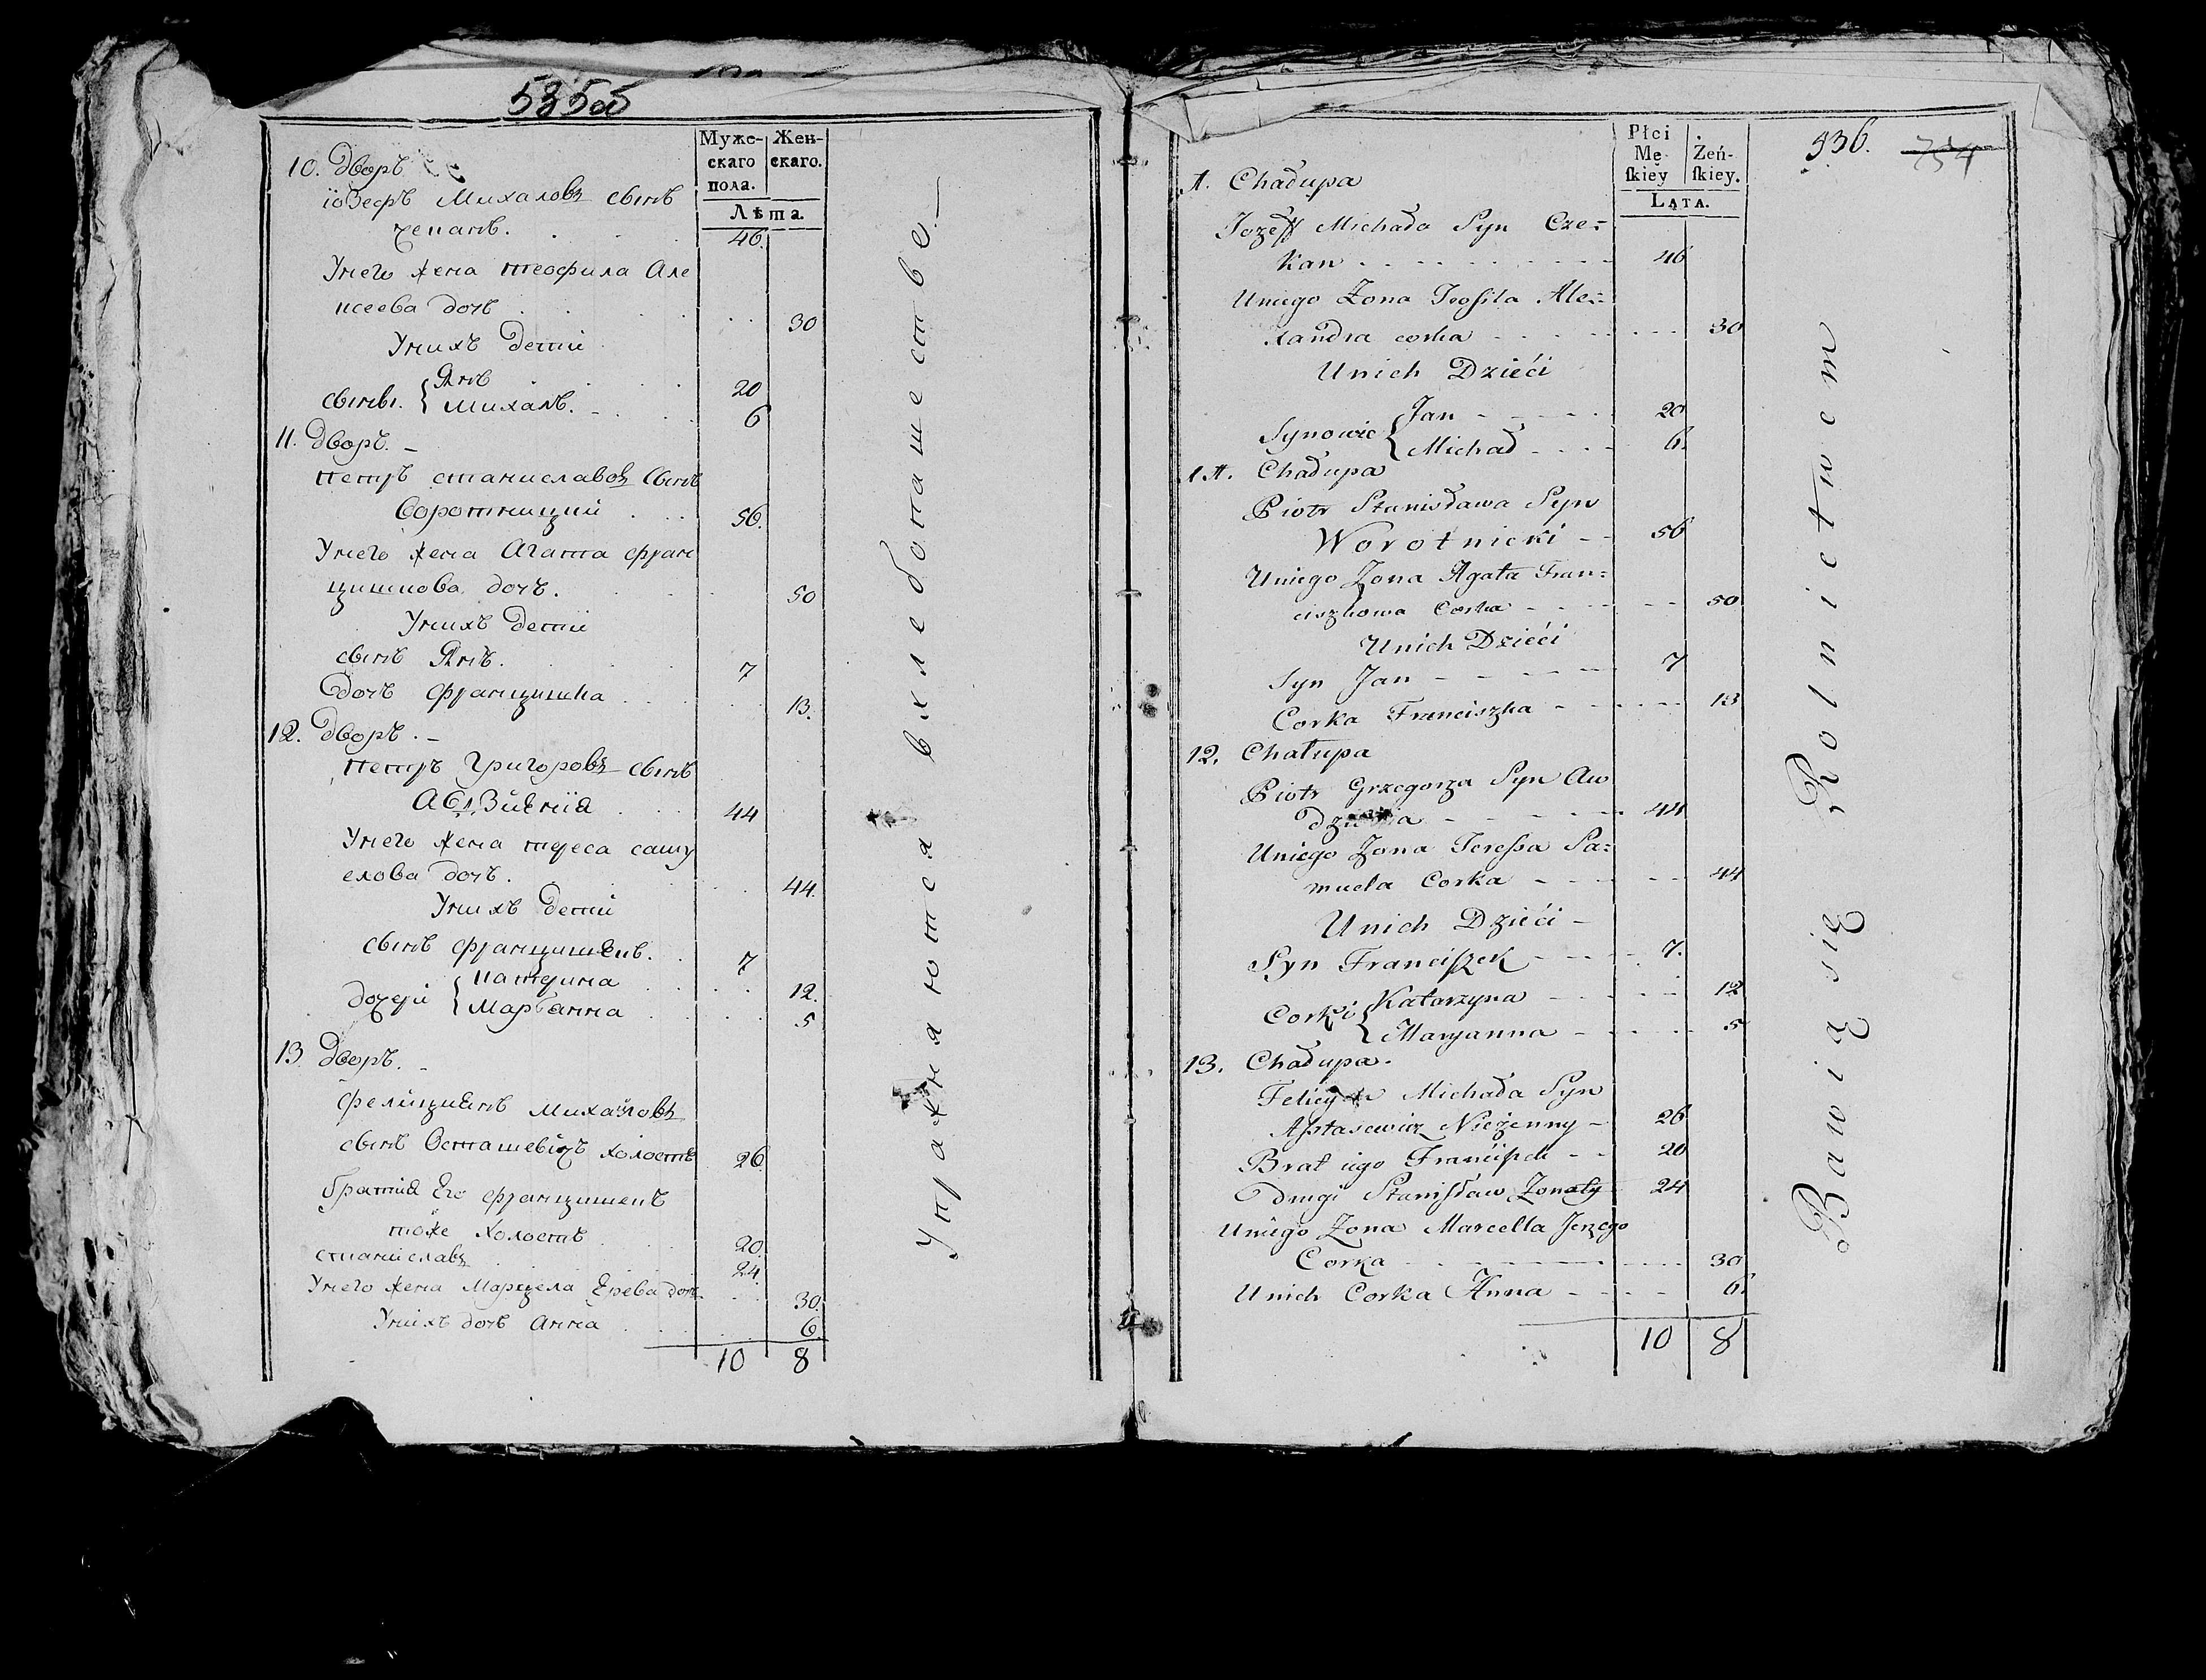 535об
Муже-
скаго
пола.
Жен-
скаго.
Лѣта.
10. Дворъ
іозефъ Михаловъ сынъ
чеканъ. 46.
Унего жена теофила Але
ксеева дочъ 30
Унихъ Дети
сыны. { Янъ 20
Михалъ. 6
11. Дворъ. –
петръ станиславовъ сынъ
Воротницкий 56.
Унего жена Агата фран
цишкова дочъ. 50
Унихъ Дети
сынъ Янъ. 7
Дочъ францишка 13.
12. Дворъ. –
петръ Григоровъ сынъ
44
Унего жена тереса саму
елова дочъ. 44.
Унихъ Дети
сынъ францишекъ. 7
дочери { катерина 12.
Марьанна 5
13 Дворъ. –
фелициянъ Михайловъ
сынъ Осташевичъ холостъ 26
братия Его францишекъ
тоже холостъ 20.
станиславъ 24.
Унего жена Марцела Ерева дочъ 30.
Унихъ дочъ Анна 6
10 8
Упражняются вхлебопашестве –
Płci
Mę
ſkiey
Żeń-
ſkiey.
LATA.
536. 754
Chałupa
Jozeff Michała Syn Cze=
kan 46
Uniego Zona Teofila Ale=
xandra corka 30
Unich Dzieći
Synowie { Jan 20
Michał 6.
11. Chałupa
Piotr Stanisława Syn
Worotnicki 56
Uniego Zona Agata Fran=
ciszkowa Corka 50
Unich Dzieći
Syn Jan 7
Corka Franciszka 13
12. Chałupa
Piotr Grzegorza Syn Aw
44
Uniego Zona Teressa Sa=
muela Corka 44
Unich Dzieći –
Syn Franciſzek 7.
Corki { Katarzyna 12
Maryanna 5
13. Chałupa.
Michała Syn
Aſstasewicz Nieżenny 26
Brat iego Franciſzek 20
drugi Staniſław Zonaty 24
Uniego Zona Marcella Jerzego
Corka 30
Unich Corka Anna 6.
10 8
Bawią się Rolnictwem